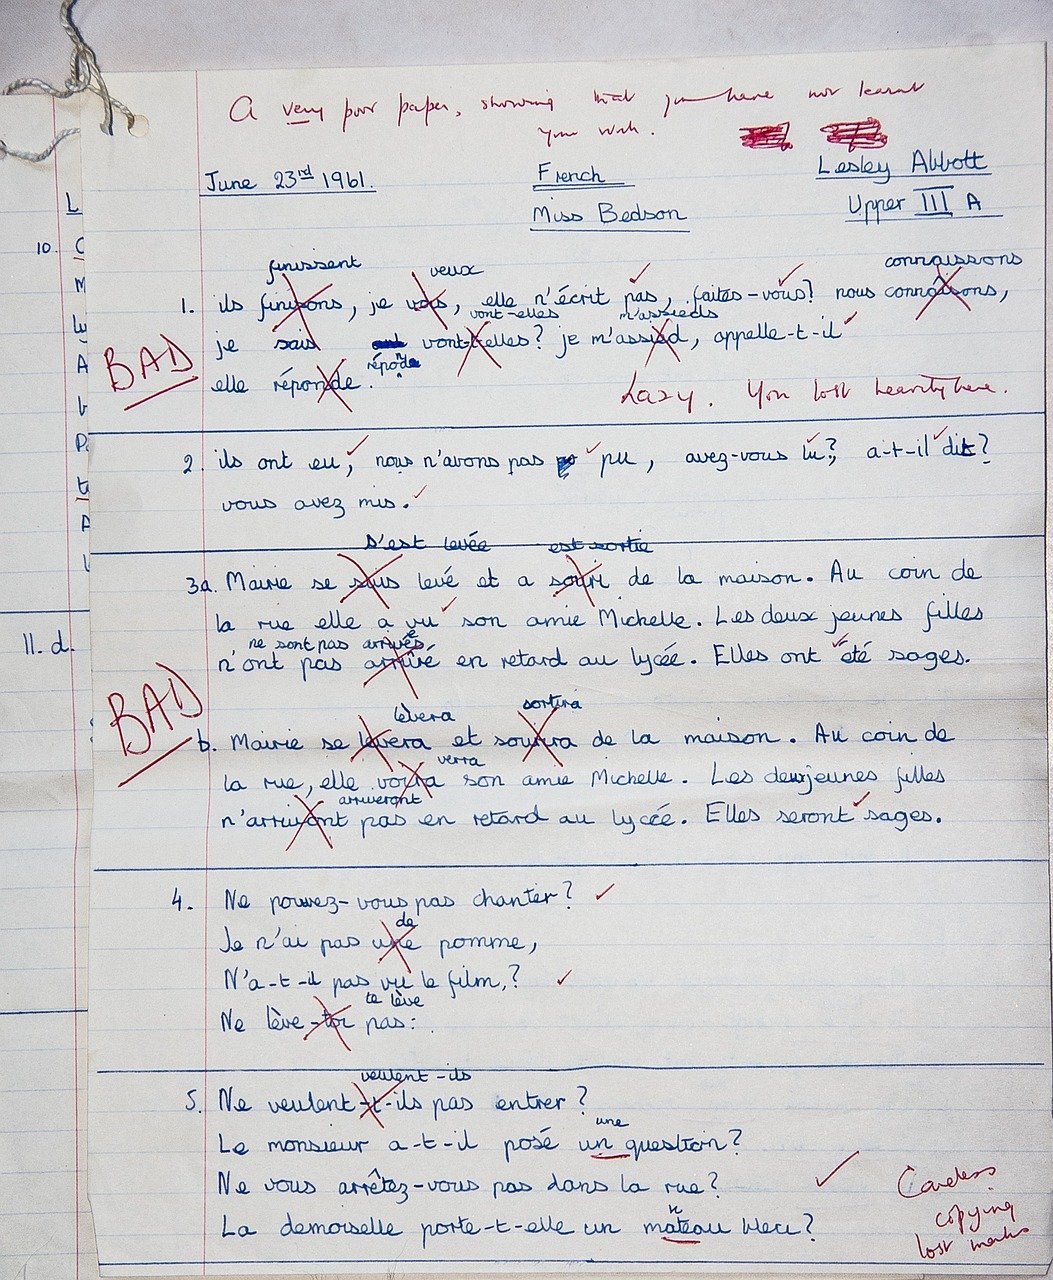 A very poor paper, showing that you have not learnt
your work.
June 23rd 1961.
French
Lesley Abbott
Miss Bedson
Upper III A
finissent veux connaissons
1. ils finisons, je vois, elle n'écrit pas, faites-vous? nous connaîsons,
vont-elles m'assieds
BAD
je sais vont-t-elles? je m'assied, appelle-t-il
réponde
elle réponde.
Lazy. You lost heavily here.
2. ils ont eu, nous n'avons pas pu, avez-vous lu?, a-t-il dit?
vous avez mis.
s'est levée est sortie
3a. Mairie se suis levé et a souri de la maison. Au coin de
la rue elle a vu son amie Michelle. Les deux jeunes filles
ne sont pas arrivées
n'ont pas arrivé en retard au lycée. Elles ont été sages.
BAD
lèvera sortira
b. Mairie se levera et sourira de la maison. Au coin de
verra
la rue, elle voira son amie Michelle. Les deux jeunes filles
arriveront
n'arriviont pas en retard au lycée. Elles seront sages.
4. Ne pouvez-vous pas chanter?
de
Je n'ai pas une pomme,
N'a-t-il pas vu le film,?
te lève
Ne lève-toi pas:
veulent-ils
5. Ne veulent-t-ils pas entrer?
une
Le monsieur a-t-il posé un question?
Ne vous arrêtez-vous pas dans la rue?
n
La demoiselle porte-t-elle un mateau bleu?
Careless
copying
lost marks
10.
11. d.